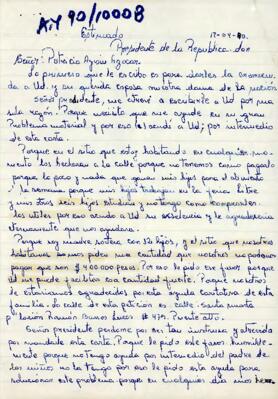 AM 90/10008
Estimado 17-04-90.
Presidente de la Republica. don
Señor: Patricio Aylwin Azocar.
Lo primero que le escribo es para darles la
a Ud y su querida esposa nuestra dama de la nación
Señor presidente, me atreví a escribirle a Ud por una
sola razón. Porque necesito que me ayude en un gran
Problema material y por eso le acudí a Ud; por intermedio
de esta carta.
Porque en el sitio que estoy habitando en cualquier mo-
mento los hecharan a la calle porque no tenemos como pagarlo
porque lo poco y nada que ganan mis hijos para el alimento
de la semana porque mis hijos trabajan en la feria libre
y mis otros seis hijos estudian y no tengo como comprarles
los utiles por eso acudo a Ud su exelencia y le agradecería
eternamente que nos ayudara.
Porque soy madre soltera con 12 hijos, y el sitio que nosotros
habitamos nos piden una cantidad que nosotros no podemos
pagar que son $ 400.000 pesos. Por eso le pido ese favor porque
ud me puede ayudar con esa cantidad fuerte. Porque nosotros
le estariamos agradecidos por esta ayuda caritativa de esta
familia. la calle de esta petición es calle: Santa marta
población Ramón Barros Luco # 479. Puente alto.
Señor presidente perdone por ser tan inoportuna y atrevida
por mandarle esta carta. Porque le pido este favor humilde-
mente porque no tengo ayuda por intermedio del padre de
los niños. no la tengo por eso le pido esta ayuda para
solucionar este problema porque en cualquier dias nos